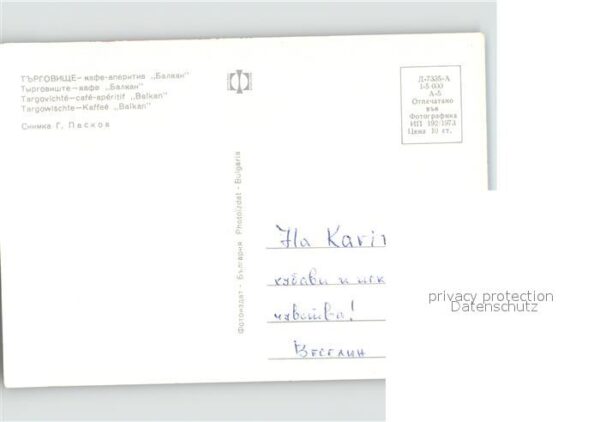 ТЪРГОВИЩЕ — кафе-аперитив „Балкан"
Тырговиште — кафе „Балкан"
Targovichté — café-apéritif „Balkan"
Targowischte — Kaffeé „Balkan"
Снимка Г. Пасков
Фотоиздат - България Photoizdat - Bulgaria
Д-7335-А
1-5 000
А-5
Отпечатано
във
Фотографика
ИП 192/1973
Цена 10 ст.
На Karin
хубави и иск
чувства!
Веселин
privacy protection
Datenschutz